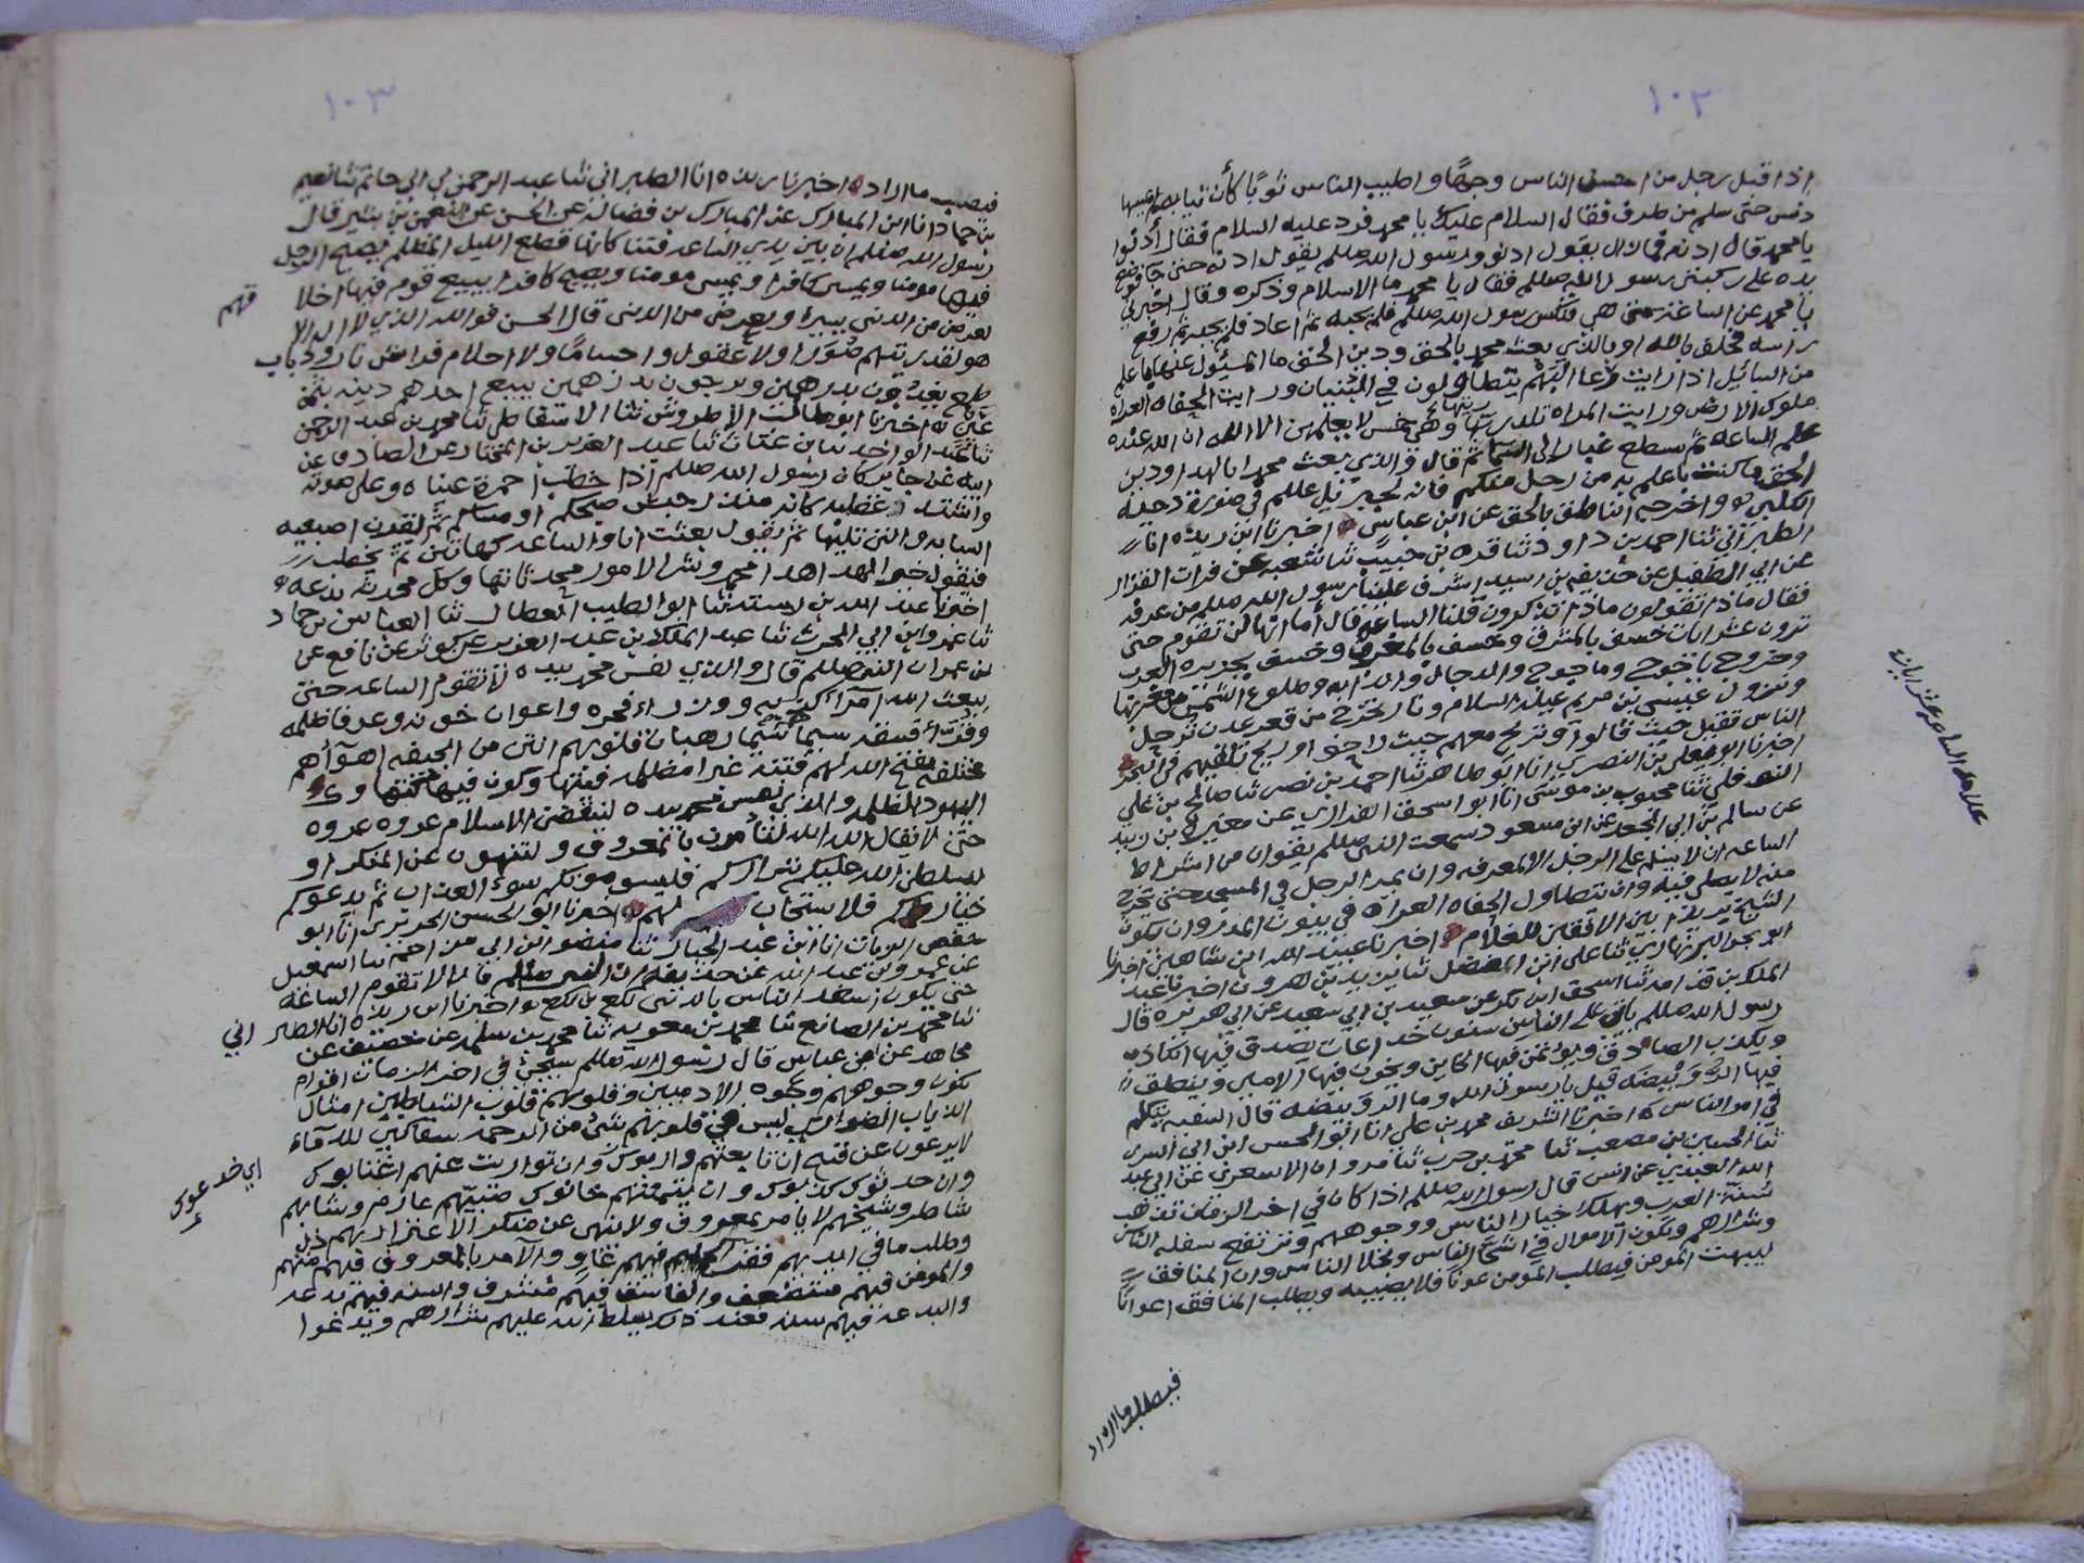 ١٠٢
اذا قبل رجل من احسن الناس وجهًا واطيب الناس ثوبًا كأن ثيابه لم يمسها
دنس حتى سلم من طرف فقال السلام عليك يا محمد فرد عليه السلام فقال أدنوا
يا محمد قال ادنه فما زال يقول ادنو ورسول الله صللم يقول ادنه حتى وضع
يده على ركبتي رسول الله صللم فقال يا محمد ما الاسلام وذكره وقال اخبرني
يا محمد عن الساعة متى هي فنكس رسول الله صللم فلم يجبه ثم اعاد فلم يجبه ثم رفع
راسه فحلف بالله او بالذي بعث محمد بالحق ودين الحق ما المسؤل عنها باعلم
من السائيل اذا رايت رعا البهم يتطاولون في البنيان ورايت الحفاه العراه
ملوك الارض ورايت المراه تلد ربتها وهي خمس لا يعلمهن الا الله ان الله عنده
علم الساعه ثم سطع غبار الى السما ثم قال والذي بعث محمدا بالهدا ودين
الحق ما كنت باعلم به من رجل منكم فانه لجبريل عللم في صورة دحية
الكلبي واخرجه الناطق بالحق عن ابن عباس اخبرنا ابن ريذه انا
الطبراني ثنا احمد بن داود ثنا قره بن حبيب ثنا شعبه عن فرات القزاز
عن ابي الطفيل عن حذيفه بن اسيد اشرف علينا رسول الله صللم من غرفه
فقال ماذا تقولون ماذا تذكرون قلنا الساعة قال أما انها لن تقوم حتى
ترون عشر ايات خسف بالمشرق وخسف بالمغرب وخسف بجزيره العرب
وخروج ياجوج وماجوج والدجال والدابه وطلوع الشمس من مغربها
ونزول عيسى بن مريم عليه السلام ونار تخرج من قعر عدن ترحل
الناس تقيل حيث قالوا وتريح معهم حيث راحوا او ريح تلقيهم في البحر
اخبرنا ابو يعلى بن النصري انا ابو طاهر ثنا احمد بن نصر ثنا صالح بن علي
النوفلي ثنا محبوب بن موسى انا ابو اسحق الفزاري عن مغيره
عن سالم بن ابي الجعد عن ابن مسعود سمعت النبي صللم يقول ان من اشراط
الساعه ان لا يسلم على الرجل الا لمعرفه وان يمر الرجل في المسجد حتى تخرج
منه لا يصلي فيه وان تتطاول الحفاه العراه في بيوت المدر وان يكون
الشيخ بريدًا بين الافقين للغلام اخبرنا عبيد الله ابن شاهين اخبرنا
ابو بحر البربهاري ثنا علي ابن الفضل ثنا يزيد بن هرون اخبرنا عبد
الملك بن قدامه ثنا اسحق ابن بكر عن سعيد بن ابي سعيد عن ابي هريره قال
رسول الله صللم ياتي على الناس سنون خداعات يصدق فيها الكاذب
ويكذب الصادق ويؤتمن فيها الخاين ويخون فيها الامين وينطق
فيها الرويبضه قيل يا رسول الله وما الرويبضه قال السفيه يتكلم
في امر الناس اخبرنا الشريف محمد بن علي انا ابو الحسن ابن ابي السري
ثنا الحسين بن مصعب ثنا محمد بن حرب ثنا مروان الاسعري عن ابي عبد
الله العبدي عن انس قال رسول الله صللم اذا كان في اخر الزمان تذهب
سنة العرب ويهلك خيار الناس ووجوههم وترتفع سفله الناس
وشرارهم وتكون الاموال في اشح الناس وبخلا الناس وان المنافق
ليبهت المومن فيطلب المومن عونًا فلا يصيبه ويطلب المنافق اعوانًا
فيطلب ما اراد
علامات الساعه عشر ايات
١٠٣
فيصيب ما اراد اخبرنا ريذه انا الطبراني ثنا عبد الرحمن بن ابي حاتم ثنا نعيم
بن حماد انا ابن المبارك عن المبارك بن فضاله عن الحسن عن النعمن بن بشير قال
رسول الله صللم ان بين يدي الساعه فتنا كانها قطع الليل المظلم يصبح الرجل
فيها مومنا ويمسي كافرا ويمسي مومنا ويصبح كافرا يبيع قوم فيها اخلا
قهم
بعرض من الدنى يسيرا وبعرض من الدنى قال الحسن فوالله الذي لا اله الا
هو لقد رايتهم صُوَرا ولا عقول واجسامًا ولا احلام فراش نار وذباب
طمع يغدون بدرهمين ويروحون بدرهمين يبيع احدهم دينه بثمن
عنز اخبرنا ابو طالب الاطروش ثنا الاسفاطي ثنا محمد بن عبد الرحمن
ثنا عبد الواحد بن غياث ثنا عبد العزيز بن المختار عن الصادق عن
ابيه عن جابر كان رسول الله صللم اذا خطب احمرة عيناه وعلى صوته
واشتد غضبه كانه منذر جيش صبحكم او مساكم ثم يقرن اصبعيه
السبابه والتي تليها ثم يقول بعثت انا والساعه كهاتين ثم يخطب
فيقول خير الهدا هدا محمد وشر الامور محدثاتها وكل محدثه بدعه
اخبرنا عبد الله بن رسته ثنا ابو الطيب العطار ثنا العباس بن حماد
ثنا عمرو ابن ابي الحرث ثنا عبد الملك بن عبد العزيز عن كوثر عن نافع عن
ابن عمر ان النبي صللم قال والذي نفس محمد بيده لا تقوم الساعه حتى
يبعث الله أمرآء كذبه ووزراء فجره واعوان خونه وعرفا ظلمه
وقرّا فسقه سيماهم سيما رهبان قلوبهم انتن من الجيفه اهوآهم
مختلفه يفتح الله لهم فتنه غبرا مظلمه
اليهود الظلمه والذي نفس محمد بيده لينقضن الاسلام عروه عروه
حتى لا يقال الله الله لتأمرن بالمعروف ولتنهون عن المنكر او
ليسلطن الله عليكم شراركم فليسومونكم سوء العذاب ثم يدعوكم
خياركم فلا يستجاب لهم اخبرنا ابو الحسن الحريري انا ابو
حفص الزيات انا ابن عبد الجبار ثنا منصور ابن ابي مزاحم ثنا اسمعيل
عن عمرو بن عبد الله عن حذيفه ان النبي صللم قال لا تقوم الساعة
حتى يكون اسعد الناس بالدنى لكع بن لكع اخبرنا ابن ريذه انا الطبر اني
ثنا محمد بن الصايغ ثنا محمد بن معويه ثنا محمد بن سلمه عن خصيف عن
مجاهد عن ابن عباس قال رسول الله صللم سيجئ في اخر الزمان اقوام
تكون وجوههم وجوه الادميين وقلوبهم قلوب الشياطين امثال
الذياب الضواري ليس في قلوبهم شئ من الرحمه سفاكين للدمآء
لا يرعون عن قبيح ان تابعتهم واربوك وان تواريت عنهم اغتابوك
اي خدعوك
وان حدثوك كذبوك وان ايتمنتهم خانوك صبيهم عارم وشابهم
شاطر وشيخهم لا يامر بمعروف ولا ينهى عن منكر الاعتزاز بهم ذل
وطلب ما في ايديهم فقر الحليم فيهم غاوٍ والآمر بالمعروف فيهم متهم
والمومن فيهم مستضعف والفاسق فيهم مشرف والسنه فيهم بدعه
والبدعه فيهم سنه فعند ذلك يسلط الله عليهم شرارهم ويدعوا